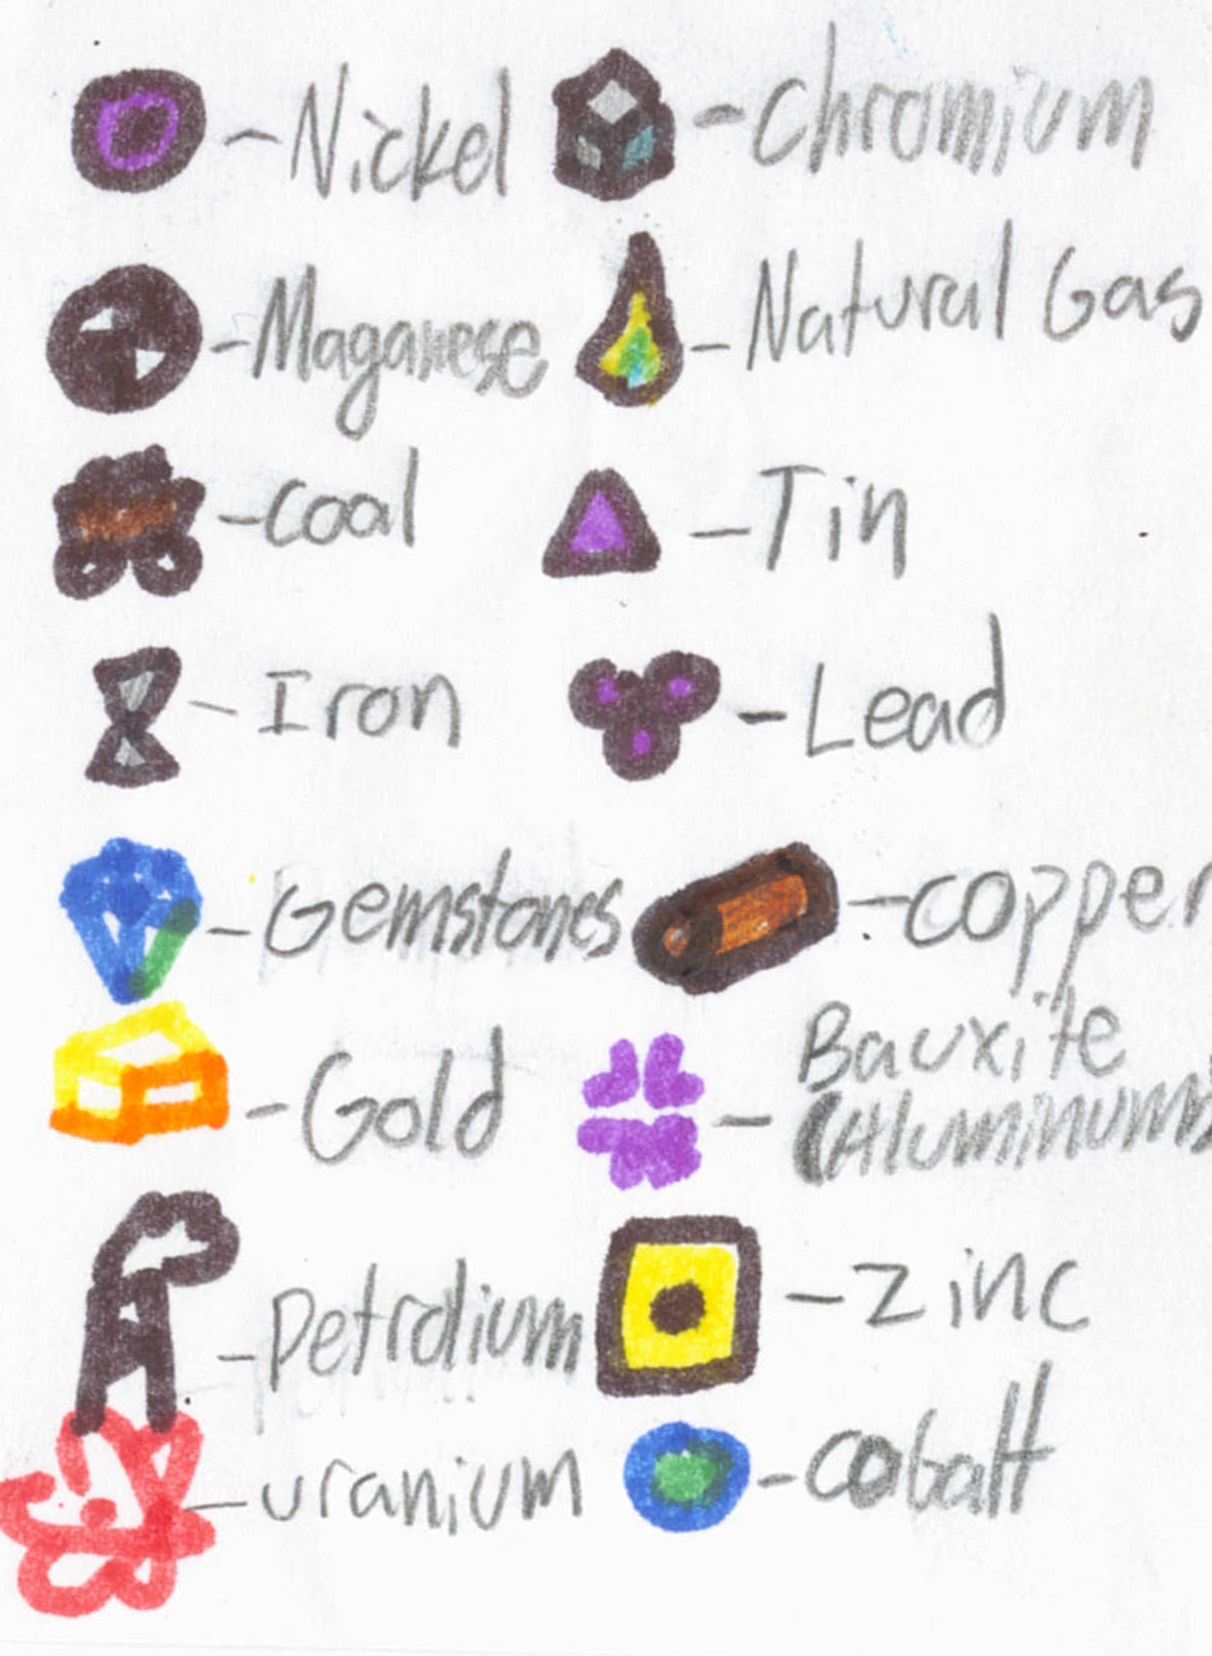 -Nickel
-Chromium
-Maganese
-Natural Gas
-coal
-Tin
-Iron
-Lead
-Gemstones
-copper
-Gold
-Bauxite
(Aluminum)
-Petrolium
-zinc
-uranium
-cobalt